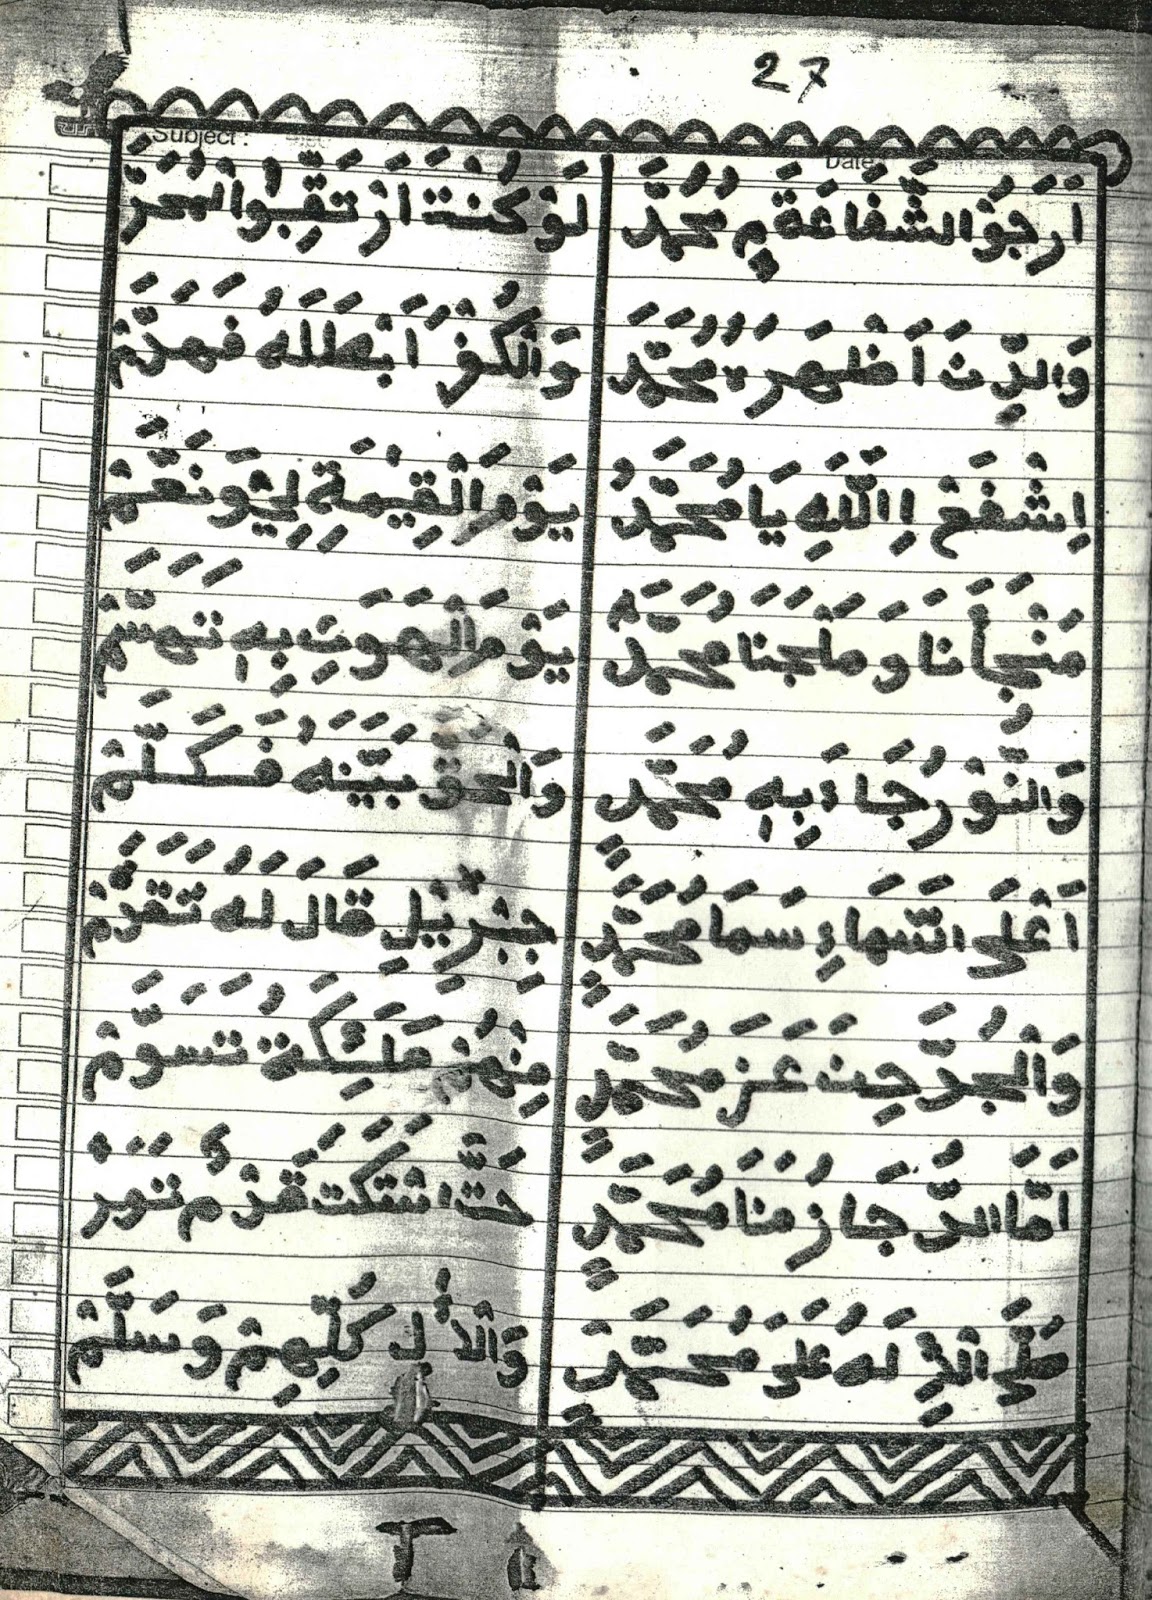 27
Subject :
Date
اَرَجُوْ الشَّفَاعَةَ مِ مُحَمَّدَ لَوْ كُنْتَ اَرْتَقِبُوا الْمُحَرَّ
وَالدِّنَ اَظْهَرَهُ مُحَمَّدَ وَالْكُفْرَ اَبْطَلَهُ فَهَزَّمْ
اِشْفَعْ اِلَلَّهِ يَا مُحَمَّدُ يَوْمَ الْقِيٰمَةِ لِيَوْ نَعَّمْ
مَنْجَأَنَا وَمَلْجَنَا مُحَمَّدْ يَوْمَ الْهَوَتِ بِهِ تَهَسَّمْ
وَالنُّوْرُ جَاءَ بِهِ مُحَمَّدَ وَالْحَقُّ بَيَّنَهُ فَكَلَّمْ
اَعْلَى السَّمَاءِ سَمَا مُحَمَّدٍ جِبْرِيْلِ قَالَ لَهُ تَقَدَّمْ
وَالْبُرَّ حِنَ عَزَ مُحَمَّدٍ مِنْهُمْ مَلَئِكَةُ تَسَوَّمْ
اَمَّا الدُّ جَازُ مَنَا مُحَمَّدٍ حَتَّ اشْتَكَتَ قَزْمُ
صَلَّى الَّذِ لَهُ عَلَى مُحَمَّدٍ وَالْاٰلِ كُلِّهِمْ وَسَلَّمْ